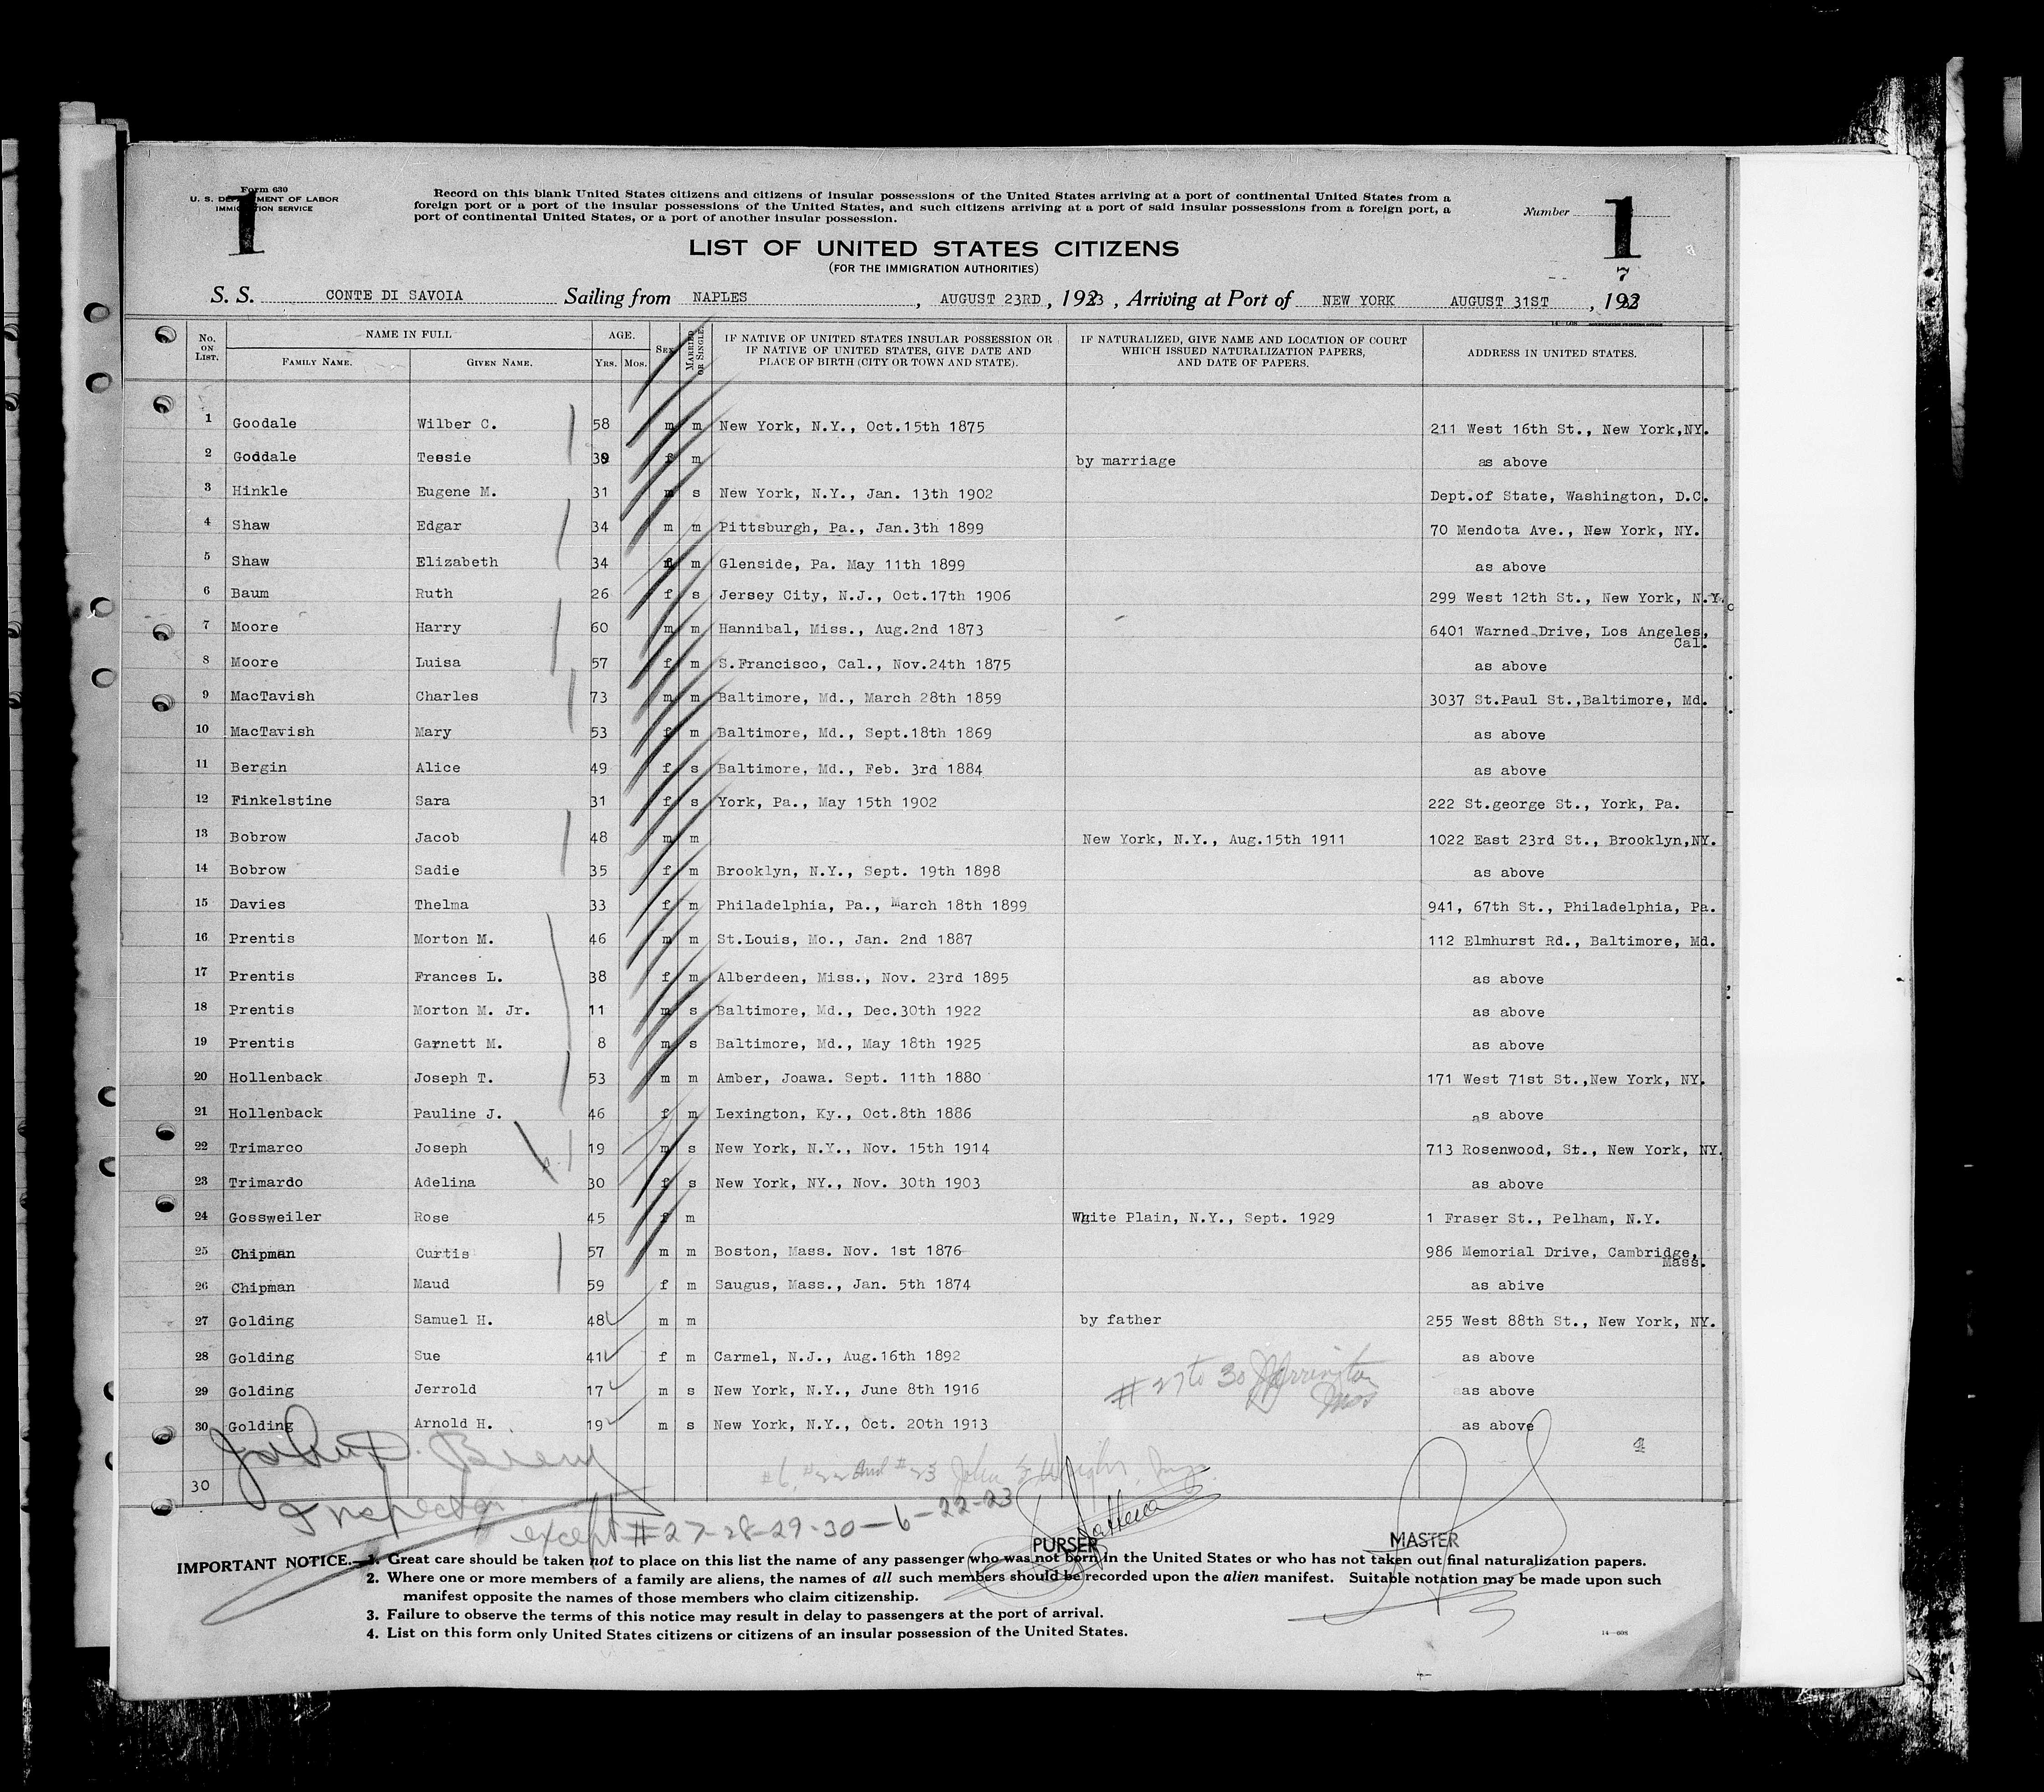 Form 630
U. S. DEPARTMENT OF LABOR
IMMIGRATION SERVICE
1
Record on this blank United States citizens and citizens of insular possessions of the United States arriving at a port of continental United States from a
foreign port or a port of the insular possessions of the United States, and such citizens arriving at a port of said insular possessions from a foreign port, a
port of continental United States, or a port of another insular possession.
Number 1
LIST OF UNITED STATES CITIZENS
(FOR THE IMMIGRATION AUTHORITIES)
7
S. S. CONTE DI SAVOIA Sailing from NAPLES, AUGUST 23RD, 1933, Arriving at Port of NEW YORK AUGUST 31ST, 193
No. ON LIST. NAME IN FULL FAMILY NAME. GIVEN NAME. AGE. YRS. MOS. SEX MARRIED OR SINGLE IF NATIVE OF UNITED STATES INSULAR POSSESSION OR IF NATIVE OF UNITED STATES, GIVE DATE AND PLACE OF BIRTH (CITY OR TOWN AND STATE). IF NATURALIZED, GIVE NAME AND LOCATION OF COURT WHICH ISSUED NATURALIZATION PAPERS, AND DATE OF PAPERS. ADDRESS IN UNITED STATES.
1 Goodale Wilber C. 58 m m New York, N.Y., Oct.15th 1875 211 West 16th St., New York,NY.
2 Goddale Tessie 39 f m by marriage as above
3 Hinkle Eugene M. 31 m s New York, N.Y., Jan. 13th 1902 Dept.of State, Washington, D.C.
4 Shaw Edgar 34 m m Pittsburgh, Pa., Jan.3th 1899 70 Mendota Ave., New York, NY.
5 Shaw Elizabeth 34 f m Glenside, Pa. May 11th 1899 as above
6 Baum Ruth 26 f s Jersey City, N.J., Oct.17th 1906 299 West 12th St., New York, N.Y.
7 Moore Harry 60 m m Hannibal, Miss., Aug.2nd 1873 6401 Warned Drive, Los Angeles, Cal.
8 Moore Luisa 57 f m S.Francisco, Cal., Nov.24th 1875 as above
9 MacTavish Charles 73 m m Baltimore, Md., March 28th 1859 3037 St.Paul St.,Baltimore, Md.
10 MacTavish Mary 53 f m Baltimore, Md., Sept.18th 1869 as above
11 Bergin Alice 49 f s Baltimore, Md., Feb. 3rd 1884 as above
12 Finkelstine Sara 31 f s York, Pa., May 15th 1902 222 St.george St., York, Pa.
13 Bobrow Jacob 48 m m New York, N.Y., Aug.15th 1911 1022 East 23rd St., Brooklyn,NY.
14 Bobrow Sadie 35 f m Brooklyn, N.Y., Sept. 19th 1898 as above
15 Davies Thelma 33 f m Philadelphia, Pa., March 18th 1899 941, 67th St., Philadelphia, Pa.
16 Prentis Morton M. 46 m m St.Louis, Mo., Jan. 2nd 1887 112 Elmhurst Rd., Baltimore, Md.
17 Prentis Frances L. 38 f m Alberdeen, Miss., Nov. 23rd 1895 as above
18 Prentis Morton M. Jr. 11 m s Baltimore, Md., Dec.30th 1922 as above
19 Prentis Garnett M. 8 m s Baltimore, Md., May 18th 1925 as above
20 Hollenback Joseph T. 53 m m Amber, Joawa. Sept. 11th 1880 171 West 71st St.,New York, NY.
21 Hollenback Pauline J. 46 f m Lexington, Ky., Oct.8th 1886 as above
22 Trimarco Joseph 19 m s New York, N.Y., Nov. 15th 1914 713 Rosenwood, St., New York, NY.
23 Trimardo Adelina 30 f s New York, NY., Nov. 30th 1903 as above
24 Gossweiler Rose 45 f m White Plain, N.Y., Sept. 1929 1 Fraser St., Pelham, N.Y.
25 Chipman Curtis 57 m m Boston, Mass. Nov. 1st 1876 986 Memorial Drive, Cambridge, Mass.
26 Chipman Maud 59 f m Saugus, Mass., Jan. 5th 1874 as abive
27 Golding Samuel H. 48 m m by father 255 West 88th St., New York, NY.
28 Golding Sue 41 f m Carmel, N.J., Aug.16th 1892 as above
29 Golding Jerrold 17 m s New York, N.Y., June 8th 1916 as above
30 Golding Arnold H. 19 m s New York, N.Y., Oct. 20th 1913 as above
# 27 to 30
John
30
#6, #22 and #23 John
Inspector
except # 27-28-29-30-6-22-23
PURSER
MASTER
IMPORTANT NOTICE.—1. Great care should be taken not to place on this list the name of any passenger who was not born in the United States or who has not taken out final naturalization papers.
2. Where one or more members of a family are aliens, the names of all such members should be recorded upon the alien manifest. Suitable notation may be made upon such
manifest opposite the names of those members who claim citizenship.
3. Failure to observe the terms of this notice may result in delay to passengers at the port of arrival.
4. List on this form only United States citizens or citizens of an insular possession of the United States.
14—608